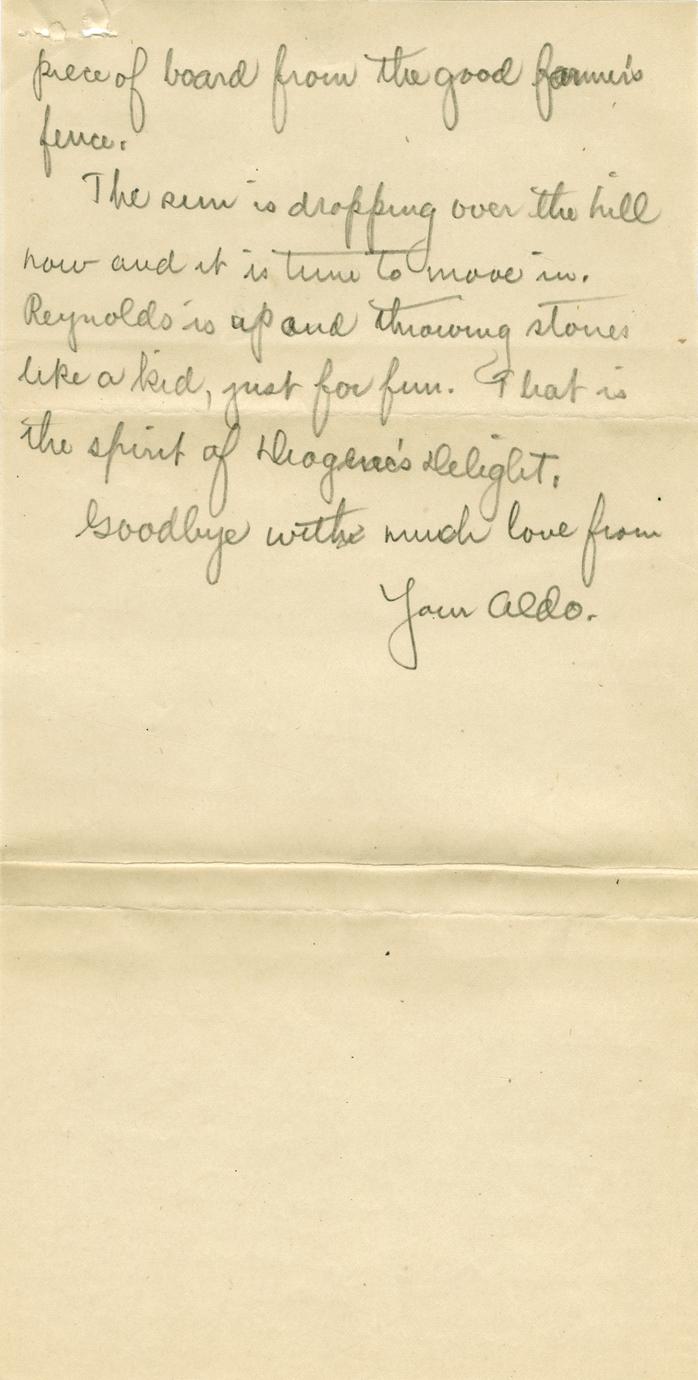 piece of board from the good farmer's
fence.
The sun is dropping over the hill
now and it is time to move in.
Reynolds is up and throwing stones
like a kid, just for fun. That is
the spirit of Diogene's Delight.
Goodbye with much love from
Your Aldo.